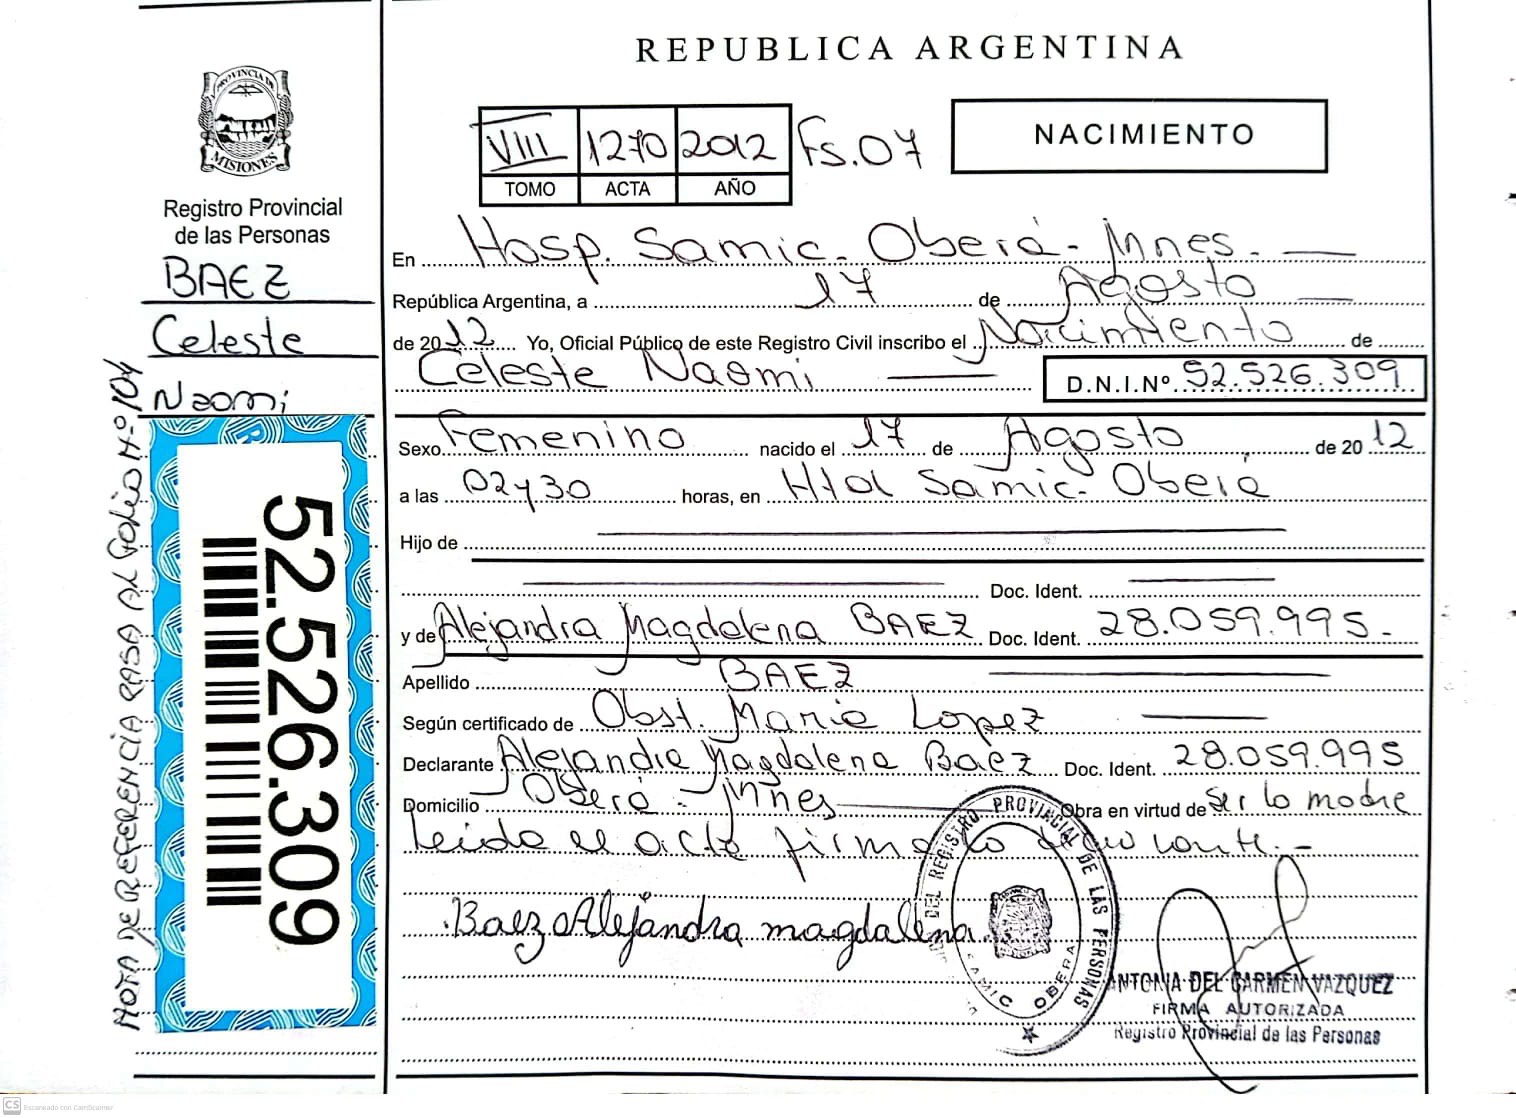 PROVINCIA DE
MISIONES
Registro Provincial
de las Personas
BAEZ
Celeste
Naomi
NOTA DE REFERENCIA PASA AL FOLIO Nº 104
52.526.309
REPUBLICA ARGENTINA
VIII 1270 2012 Fs.07
TOMO ACTA AÑO
NACIMIENTO
En Hosp. Samic. Oberá - Mnes.
República Argentina, a 17 de Agosto
de 2012 Yo, Oficial Público de este Registro Civil inscribo el Nacimiento de
Celeste Naomi D.N.I.Nº 52.526.309
Sexo Femenino nacido el 17 de Agosto de 2012
a las 02y30 horas, en Htal Samic. Oberá
Hijo de
Doc. Ident.
y de Alejandra Magdalena BAEZ Doc. Ident. 28.059.995.-
Apellido BAEZ
Según certificado de Obst. Maria Lopez
Declarante Alejandra Magdalena Baez Doc. Ident. 28.059.995
Domicilio Oberá - Mnes Obra en virtud de ser la madre
Leida el acta firma la declarante.-
Baez Alejandra magdalena
DEL REGISTRO PROVINCIAL DE LAS PERSONAS
SAMIC OBERA
ANTONIA DEL CARMEN VAZQUEZ
FIRMA AUTORIZADA
Registro Provincial de las Personas
CS Escaneado con CamScanner